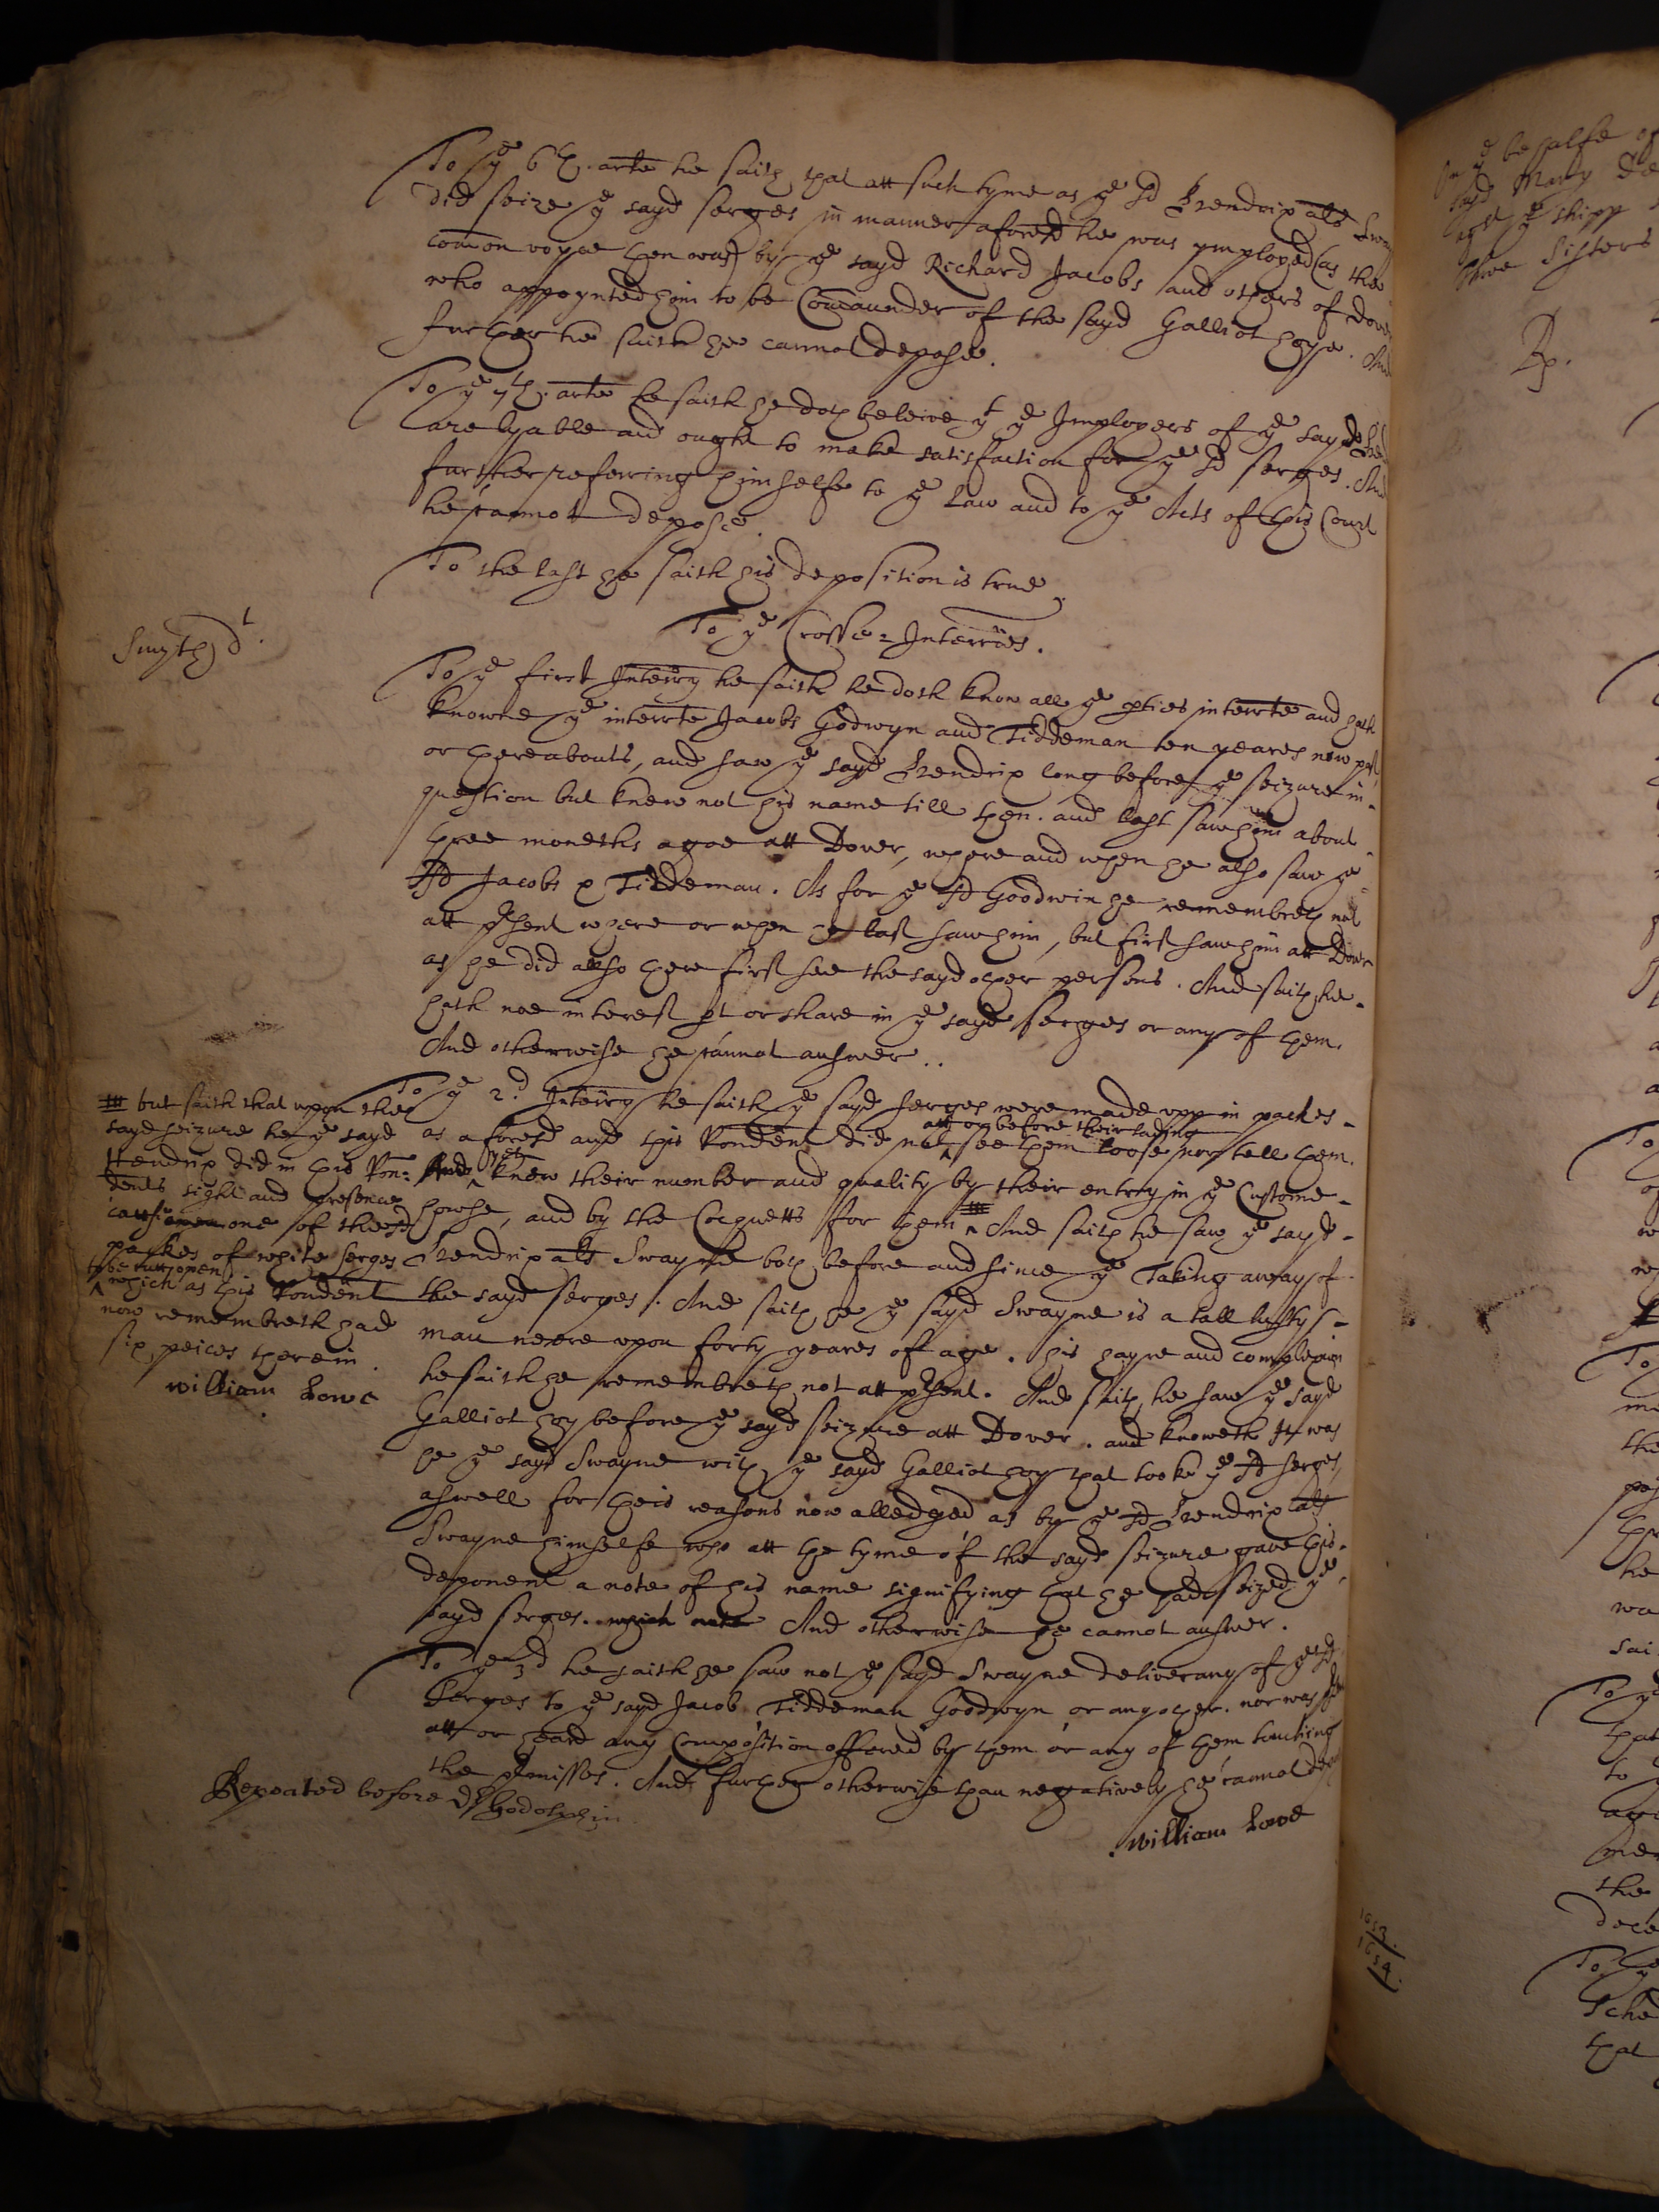 To ye 6th. arte he saith that att such tyme as ye sd Hendrix als Sway
did seize ye sayd serges in manner aforesd he was ymployed (as the
comon voyce then was) by ye sayd Richard Jacobs and others of Dover
who appoynted him to be Comaunder of the sayd Galliot hoye. And
further he saith he cannot depose.
To ye 7th. arte he saith he doth beleive yt ye Imployers of ye sayd Hen
are lyable and ought to make satisfaction for ye sd serges. And
further referring himselfe to ye Law and to ye Acts of this Court
he cannot depose.
To the last he saith his deposition is true.
To ye Crosse-Interries.
Smyth dt.
To ye first Interry he saith he doth know all ye pties interrte and hath
knowne ye interrte Jacobs Godwyn and Tiddeman ten yeares now past
or thereabouts, and saw ye sayd Hendrix long before ye seizure in-
question but knew not his name till then. and last saw him about
three moneths agoe att Dover, where and when he also saw ye
sd Jacobs & Tiddeman. As for ye sd Goodwin he remembreth not
att psent where or when he last saw him, but first saw him att Dover
as he did also there first see the sayd other persons. And saith he-
hath noe interest pt or share in ye sayd serges or any of them.
And otherwise he cannot answer..
To ye 2d. Interry he saith ye sayd serges were made upp in packes-
att or before their lading
as aforesd and this Rondent did not see them loose nor tell them.
yet
And knew their number and quality by their entry in ye Custome-
howse, and by the Cocquetts for them And saith he saw ye sayd-
Hendrix als Swayne both before and since ye Taking away of
the sayd serges. And saith he ye sayd Swayne is a tall lusty
man neere upon forty yeares of age. his hayre and complexion
he saith he remembreth not att psent. And saith he saw ye sayd
Galliot hoy before ye sayd seizure att Dover. and knoweth it was
he ye sayd Swayne with ye sayd Galliot hoy that tooke ye sd serges
aswell for theis reasons now alledged as by ye sd Hendrix als
Swayne himselfe who att the tyme of the sayd seizure gave this-
deponent a note of his name signifying that he had seized ye
sayd serges. which note And otherwise he cannot answer.
but saith that upon the
sayd seizure he ye sayd
Hendrix did in this Ron-
dents sight and presence
cause one of the sd
packes of white serges
to be cutt open
which as this Rondent
now remembreth had
six peices therein.
William Lowe
To ye 3d he saith he saw not ye sayd Swayne deliver any of ye sd
Serges to ye sayd Jacob Tiddeman Goodwyn or any other. nor was
att or heard any Composition offered by them or any of them touching
the pmisses. And further otherwise than negatively he cannot
Repeated before Dr Godolphin
William Lowe
1653.
1654.
On ye behalfe of
sayd Mary
agt ye shipp
three Sisters
Rp.